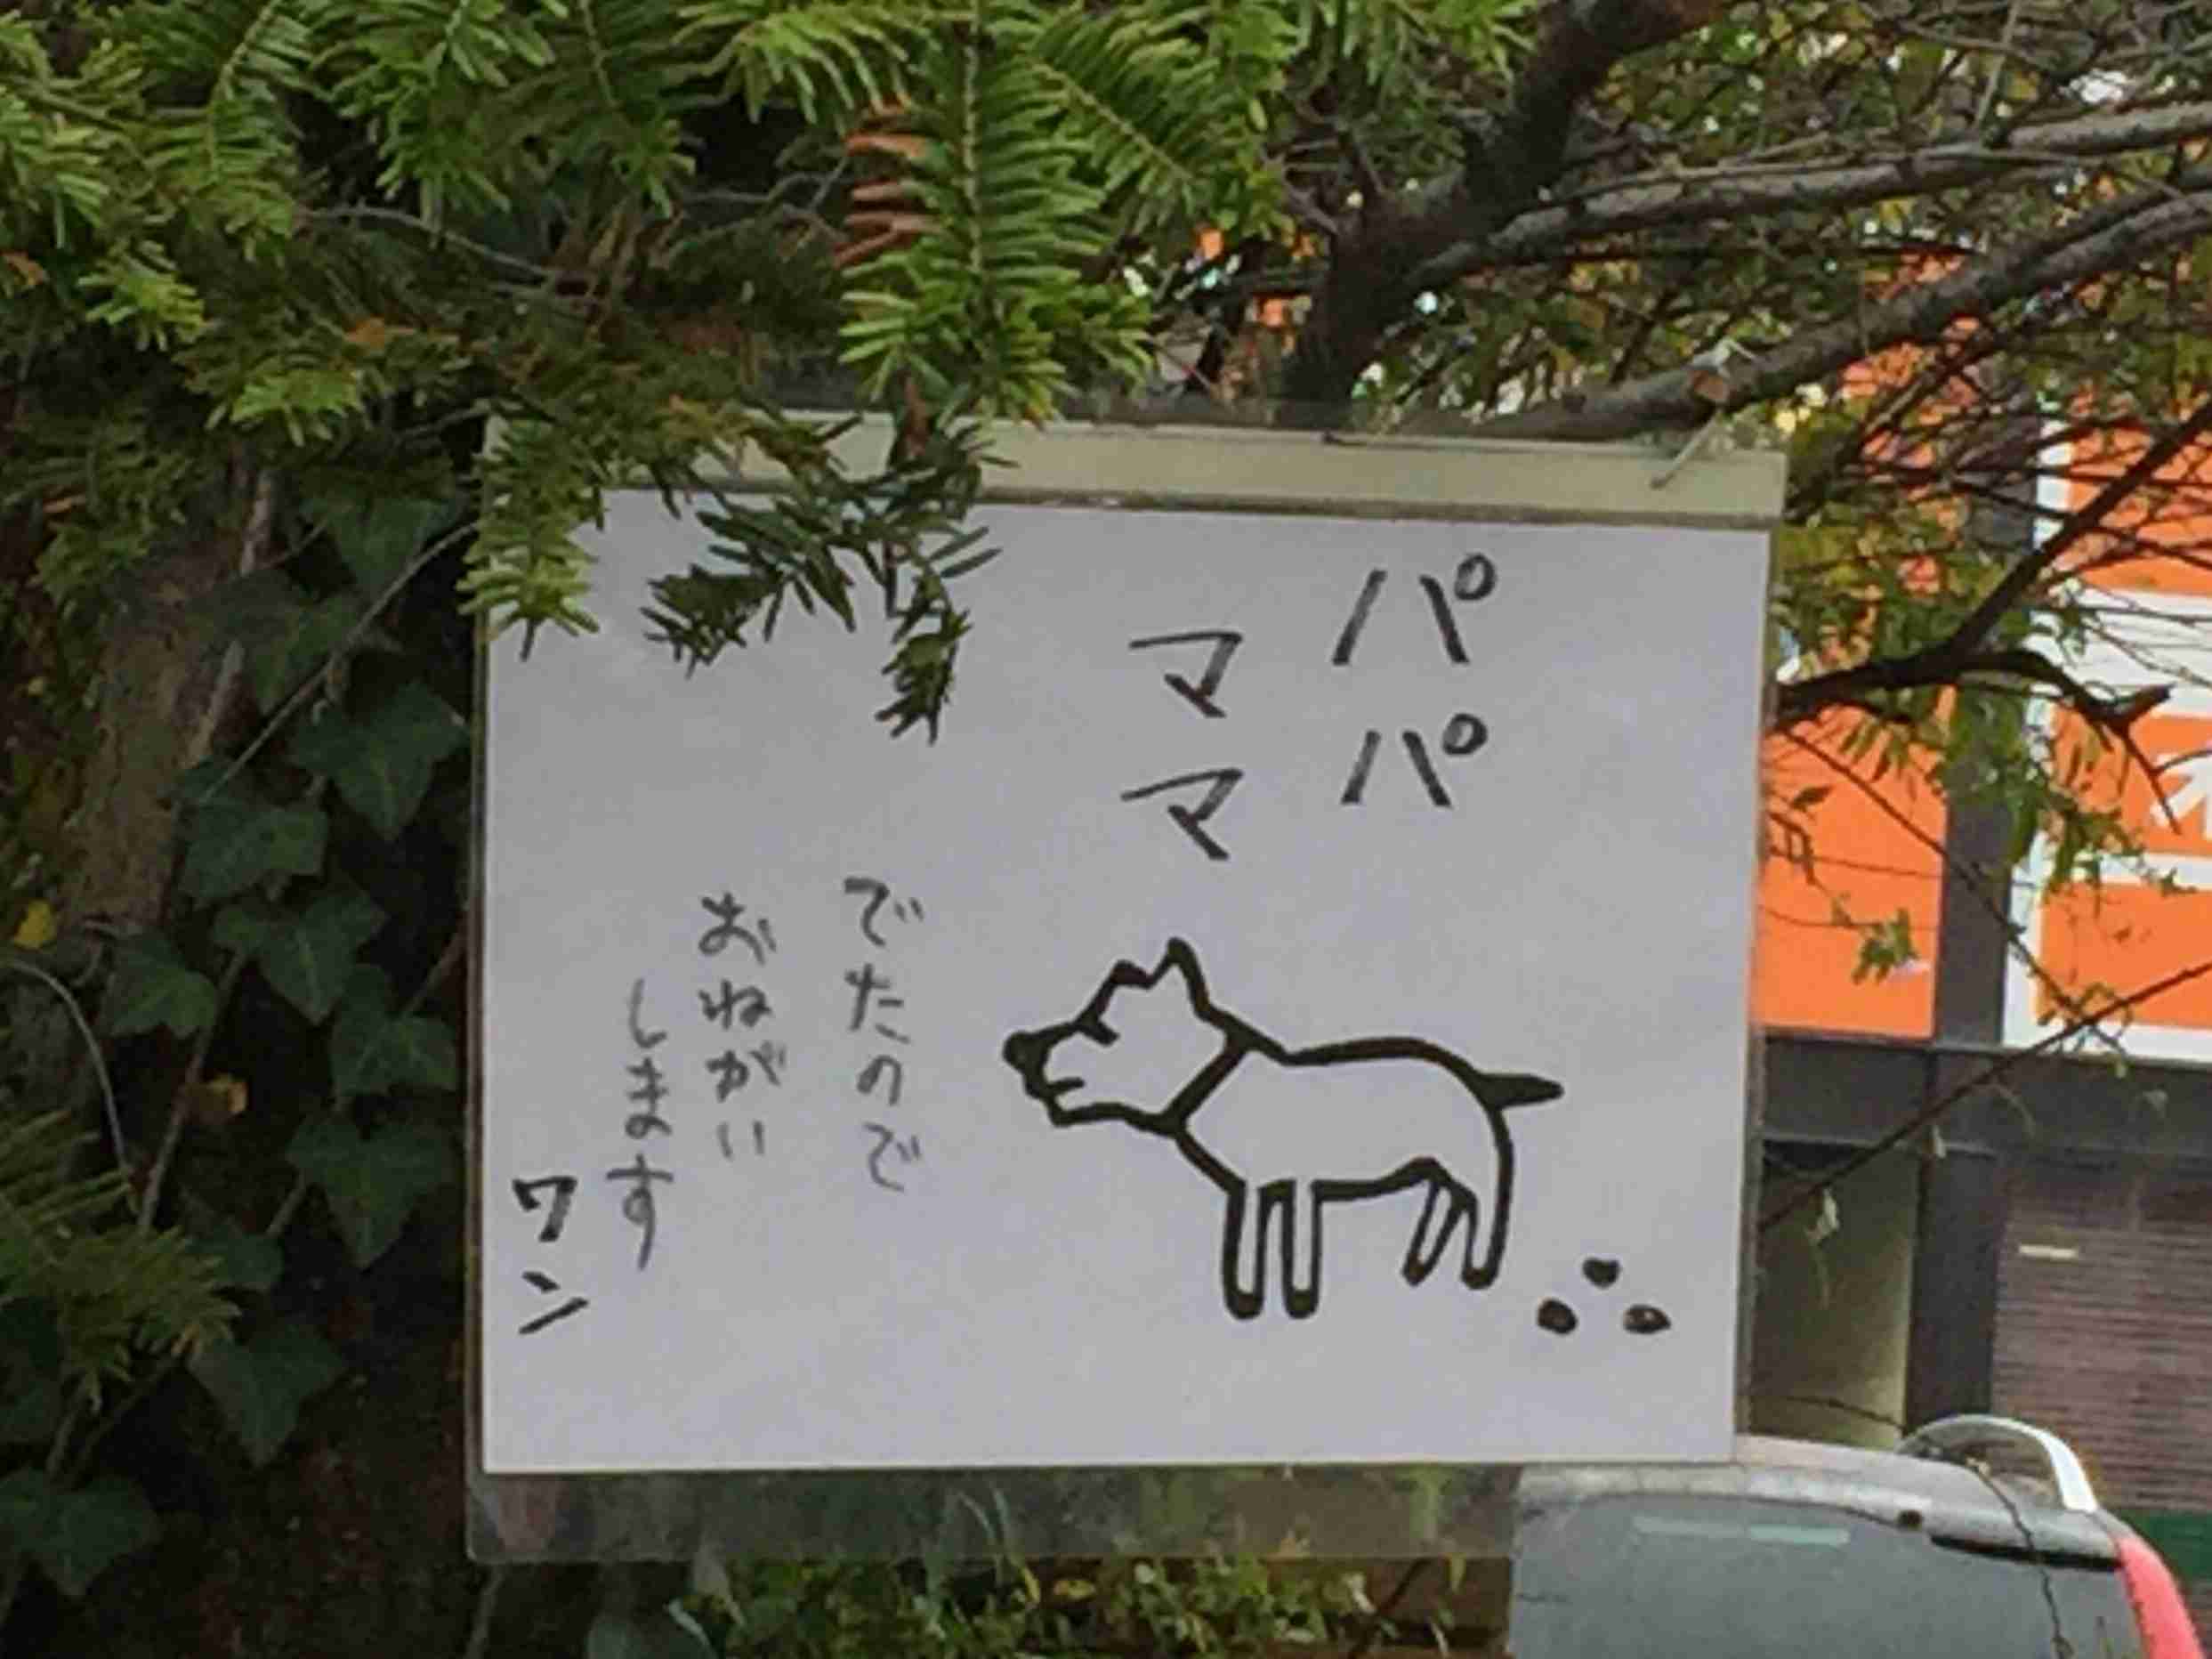 パパ
ママ
でたので
おねがい
します
ワン